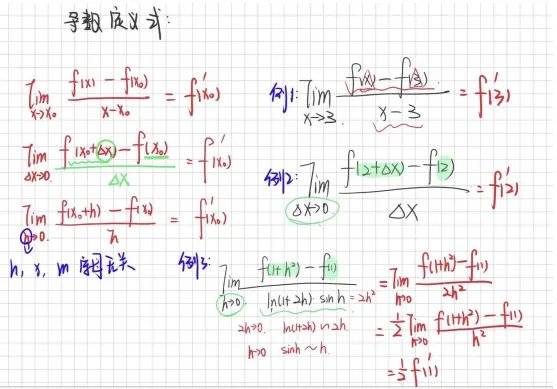 导数定义式:
lim x→x₀ (f(x) - f(x₀))/(x-x₀) = f'(x₀)
lim Δx→0 (f(x₀+Δx) - f(x₀))/Δx = f'(x₀)
lim h→0. (f(x₀+h) - f(x₀))/h = f'(x₀)
h, x, m 字母无关
例1: lim x→3. (f(x) - f(3))/(x-3) = f'(3)
例2: lim Δx→0 (f(2+Δx) - f(2))/Δx = f'(2)
例3: lim h→0 (f(1+h²) - f(1))/(ln(1+2h)·sin h) = 2h²
2h→0. ln(1+2h) ∼ 2h
h→0 sin h ∼ h.
= lim h→0 (f(1+h²) - f(1))/2h²
= 1/2 lim h→0 (f(1+h²) - f(1))/h²
= 1/2 f'(1)